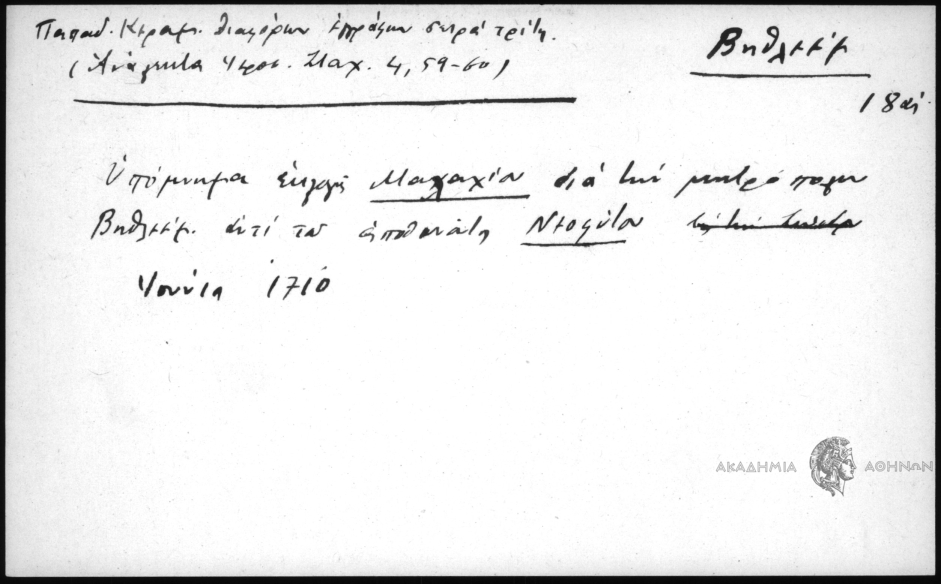 Παπαδ. Κεραμ. διαφόρων ἐγγράφων σειρά τρίτη.
(Ἀνάλεκτα Ἱεροσ. Σταχ. 4, 59-60)
Βηθλεέμ
18 αἰ.
Ὑπόμνημα ἐκλογῆς Μαλαχίου διά τήν μητρόπολιν
Βηθλεέμ. ἀντί τοῦ ἀποθανόντος
Ἰουνίου 1710
ΑΚΑΔΗΜΙΑ ΑΘΗΝΩΝ